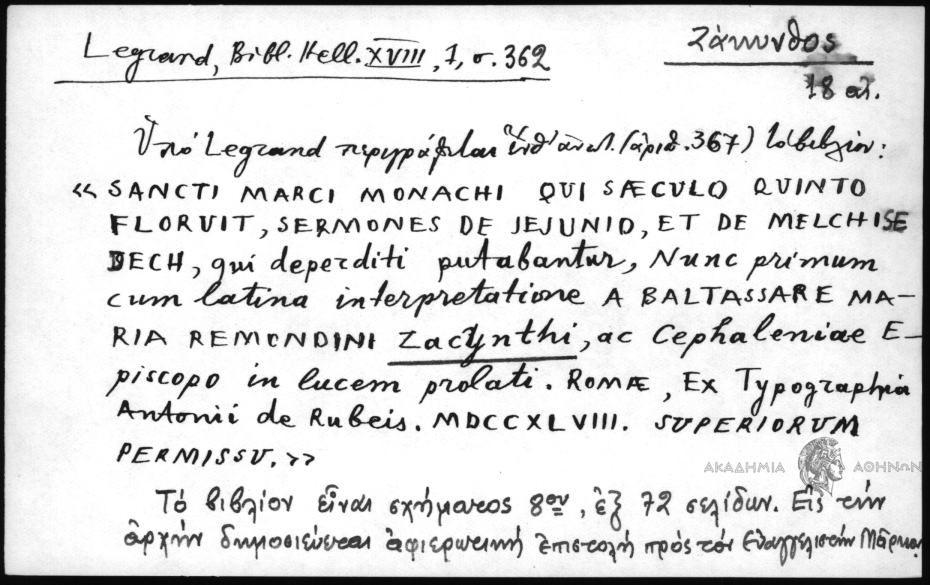 Legrand, Bibl. Hell. XVIII, 1, σ. 362
Ζάκυνθος
18 αἰ.
Ὑπό Legrand περιγράφεται ἔνθ' ἀνωτ. (ἀριθ. 367) τὸ βιβλίον:
« SANCTI MARCI MONACHI QUI SÆCULO QUINTO
FLORVIT, SERMONES DE JEJUNIO, ET DE MELCHISE
DECH, qui deperditi putabantur, Nunc primum
cum latina interpretatione A BALTASSARE MA–
RIA REMONDINI Zacynthi, ac Cephaleniae E–
piscopo in lucem prolati. ROMÆ, Ex Typographia
Antonii de Rubeis. MDCCXLVIII. SUPERIORUM
PERMISSU. »
ΑΚΑΔΗΜΙΑ ΑΘΗΝΩΝ
Τὸ βιβλίον εἶναι σχήματος 8ου, ἐξ 72 σελίδων. Εἰς τὴν
ἀρχὴν δημοσιεύεται ἀφιερωτικὴ ἐπιστολὴ πρὸς τὸν Εὐαγγελιστὴν Μᾶρκον